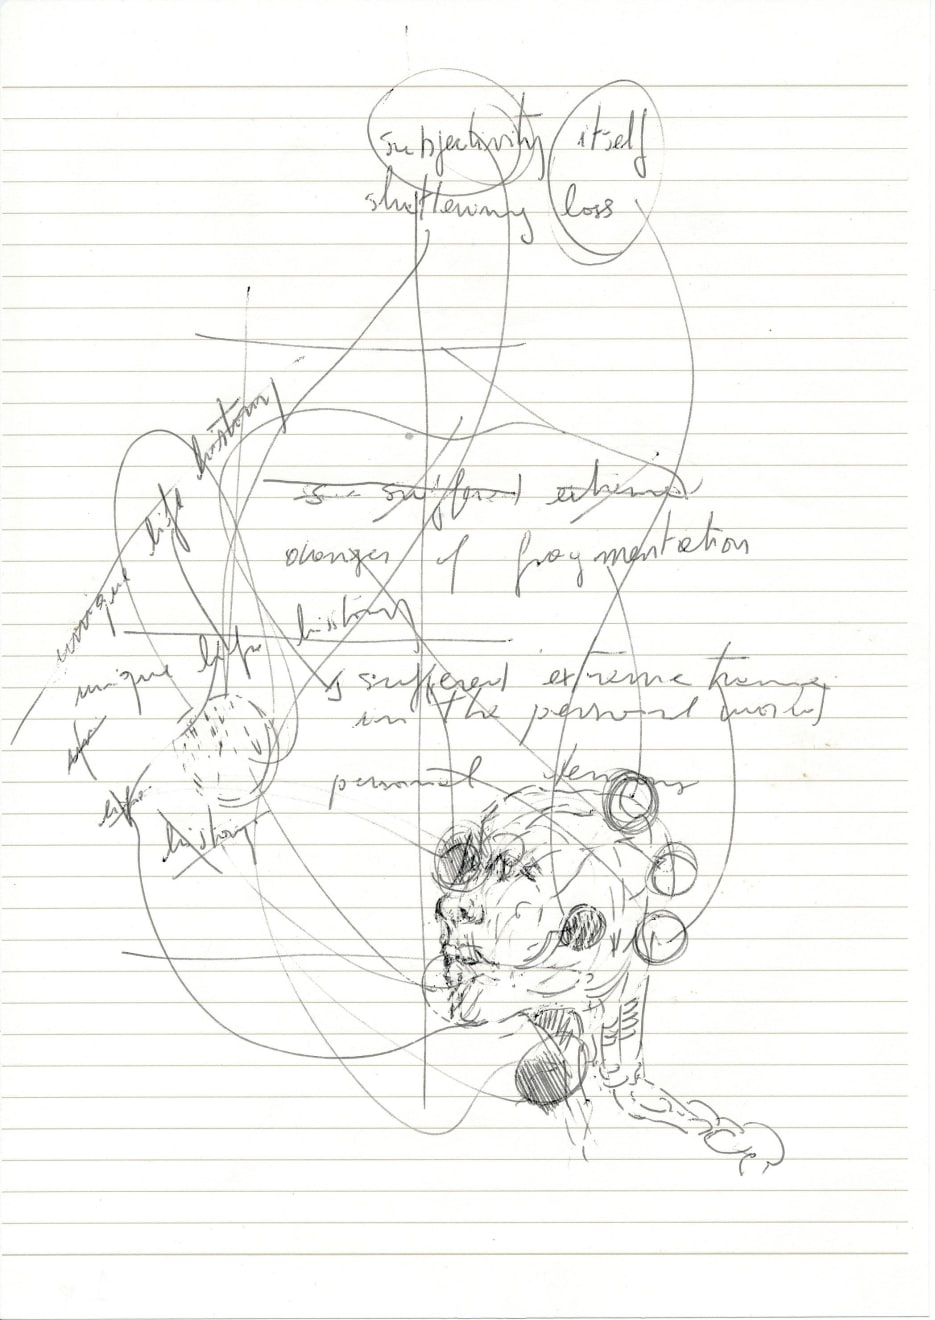 subjectivity itself
shattering loss
unique life history
suffered extreme
changes of fragmentation
unique life history
suffered extreme trauma
in the personal world
life
personal
life
history